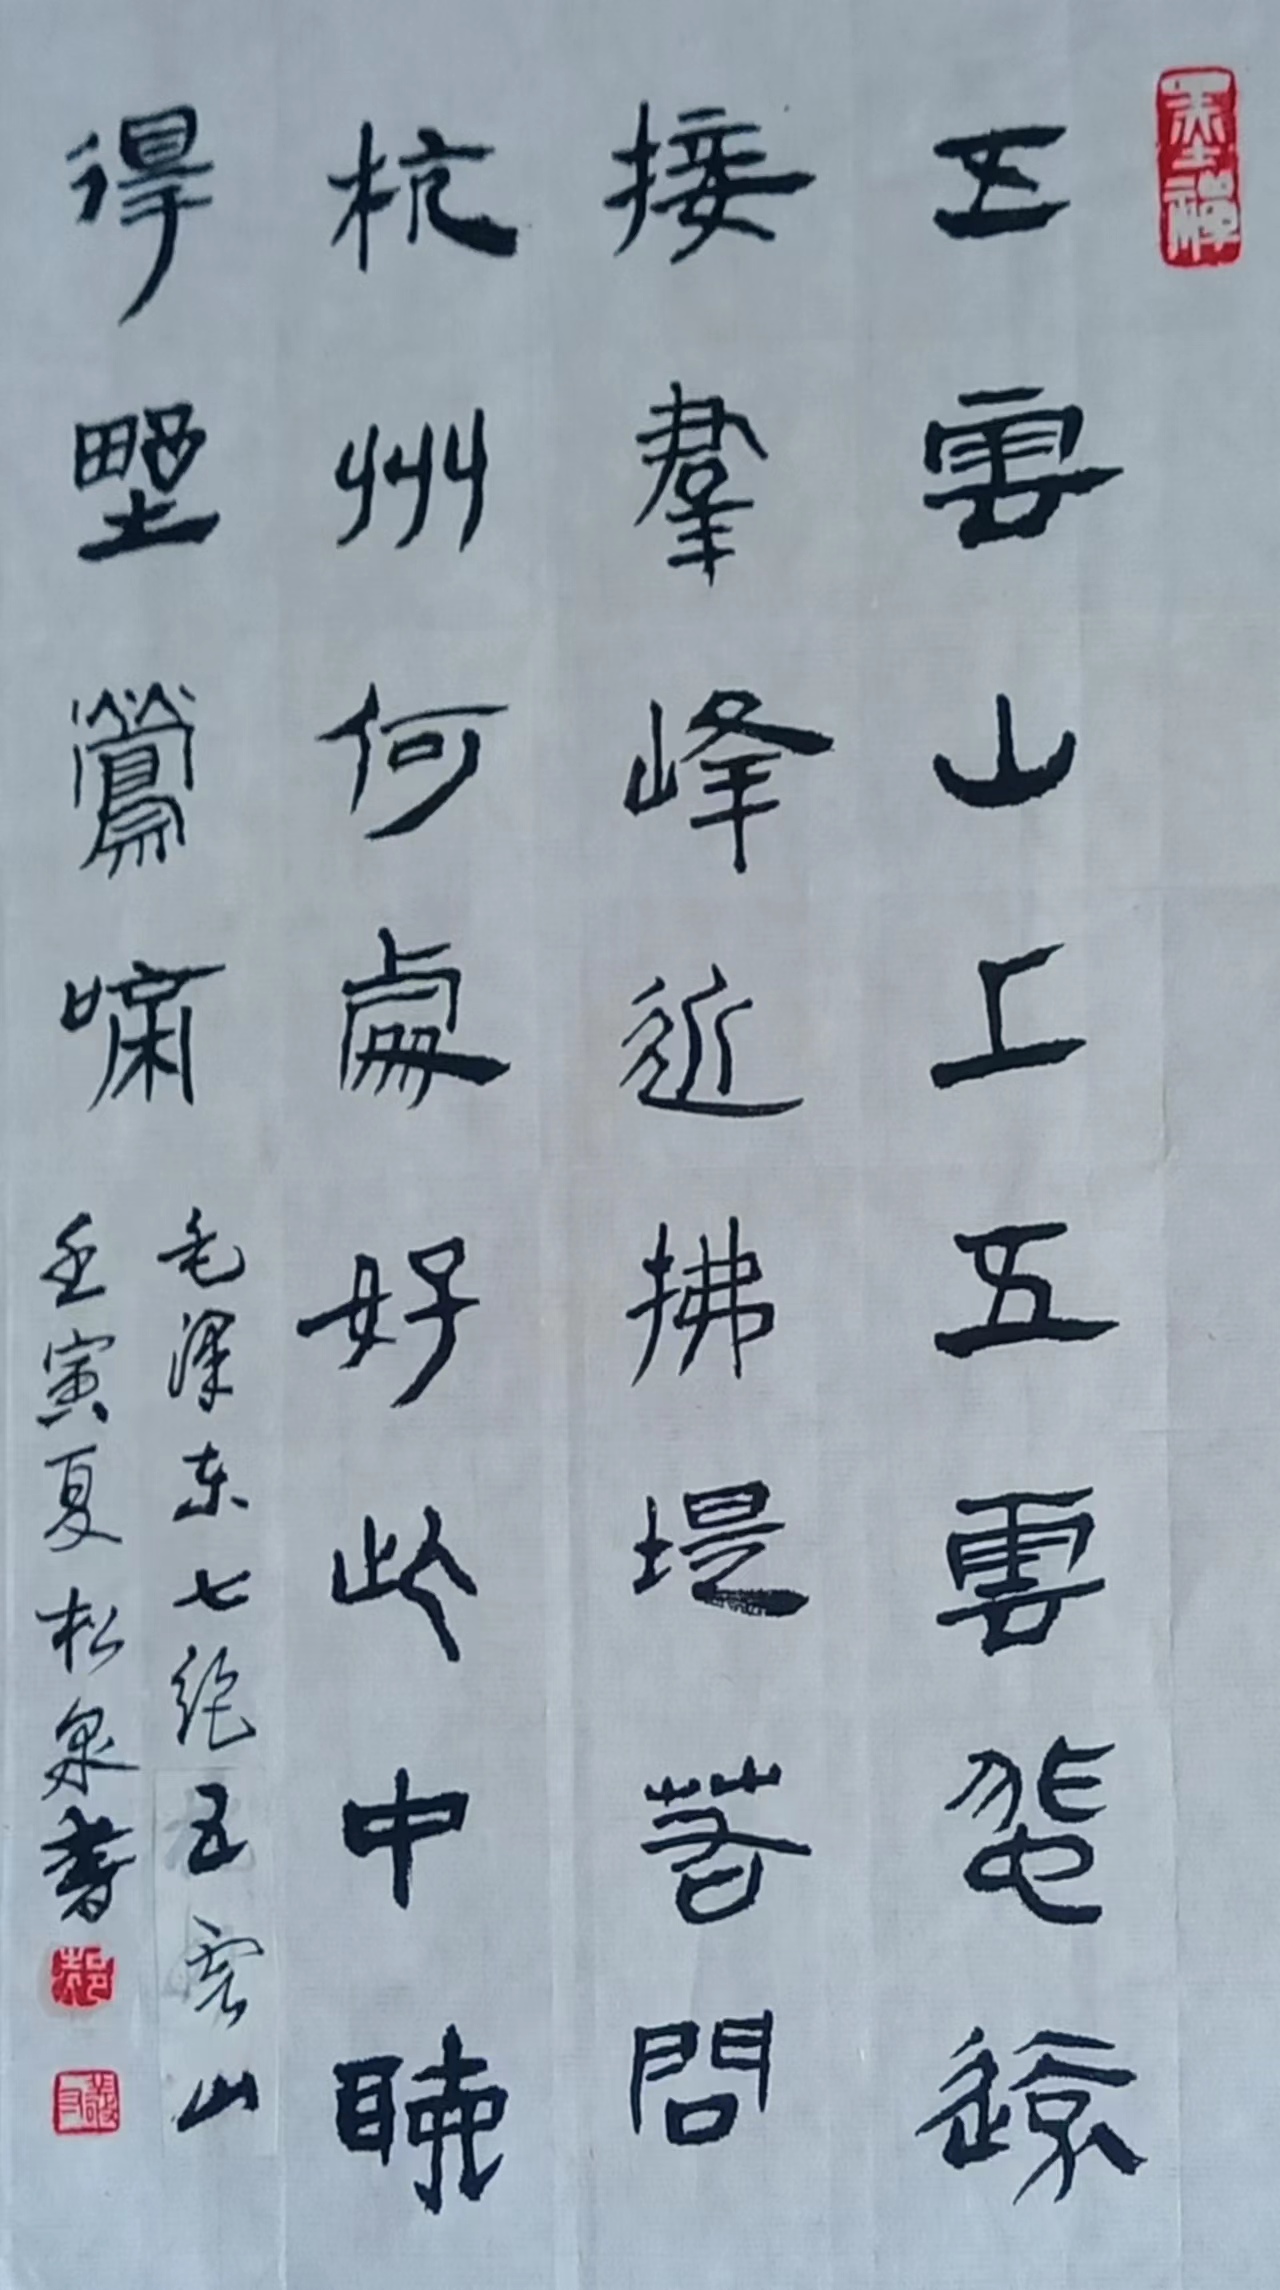 五雲山上五雲飛遠
接羣峰近拂堤若問
杭州何處好此中聽
得野鶯啼
毛澤东七绝五雲山
壬寅夏松泉書